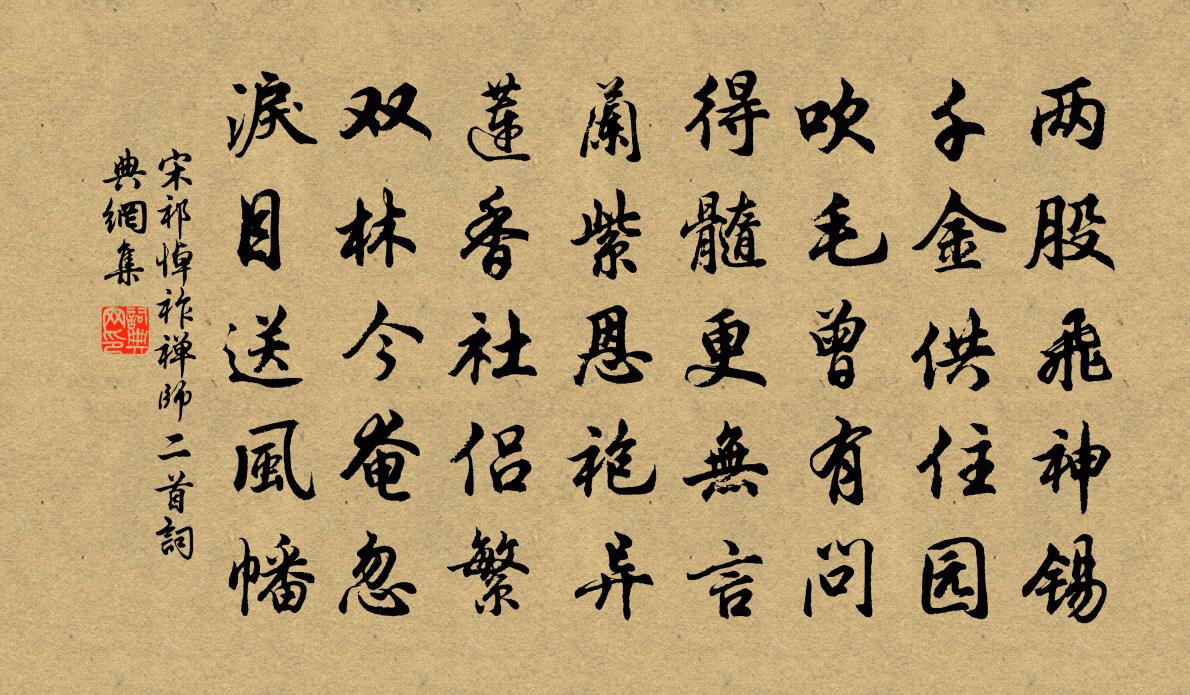 两股飛神锡
千金供住园
吹毛曾有问
得髓更無言
蘭紫恩袍异
蓮香社侣繁
双林今奄忽
淚目送風幡
宋祁悼祚禅師二首詞
典網集
詞典網印